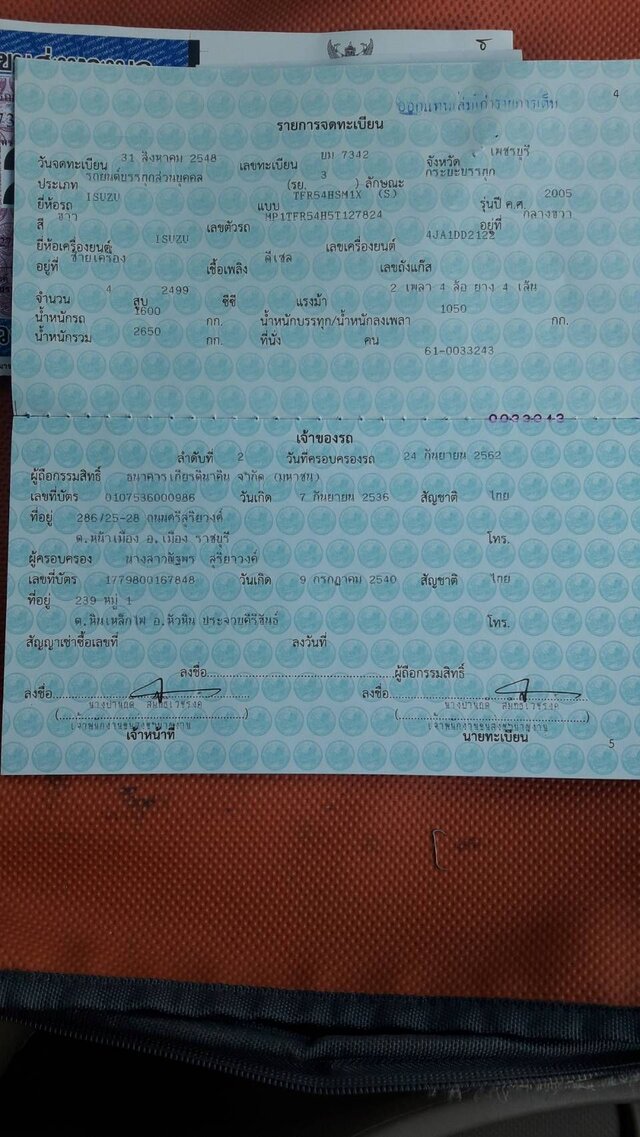 4
ออกแทนเล่มเก่ารายการเต็ม
รายการจดทะเบียน
วันจดทะเบียน 31 สิงหาคม 2548 เลขทะเบียน ยม 7342 จังหวัด เพชรบุรี
ประเภท รถยนต์บรรทุกส่วนบุคคล (รย. 3 ) ลักษณะ กระบะบรรทุก
ยี่ห้อรถ ISUZU แบบ TFR54HSM1X (S) รุ่นปี ค.ศ. 2005
สี ขาว เลขตัวรถ MP1TFR54H5T127824 อยู่ที่ กลางขวา
ยี่ห้อเครื่องยนต์ ISUZU เลขเครื่องยนต์ 4JA1DD2122
อยู่ที่ ซ้ายเครื่อง เชื้อเพลิง ดีเซล เลขถังแก๊ส
จำนวน 4 สูบ 2499 ซีซี แรงม้า 2 เพลา 4 ล้อ ยาง 4 เส้น
น้ำหนักรถ 1600 กก. น้ำหนักบรรทุก/น้ำหนักลงเพลา 1050 กก.
น้ำหนักรวม 2650 กก. ที่นั่ง คน
61-0033243
0033243
เจ้าของรถ
ลำดับที่ 2 วันที่ครอบครองรถ 24 กันยายน 2562
ผู้ถือกรรมสิทธิ์ ธนาคารเกียรตินาคิน จำกัด (มหาชน)
เลขที่บัตร 0107536000986 วันเกิด 7 กันยายน 2536 สัญชาติ ไทย
ที่อยู่ 286/25-28 ถนนศรีสุริยวงศ์
ต.หน้าเมือง อ.เมือง ราชบุรี โทร.
ผู้ครอบครอง นางสาวณัฐพร สุริยาวงค์
เลขที่บัตร 1779800167848 วันเกิด 9 กรกฎาคม 2540 สัญชาติ ไทย
ที่อยู่ 239 หมู่ 1
ต.หินเหล็กไฟ อ.หัวหิน ประจวบคีรีขันธ์ โทร.
สัญญาเช่าซื้อเลขที่ ลงวันที่
ลงชื่อ ผู้ถือกรรมสิทธิ์
ลงชื่อ ลงชื่อ
เจ้าพนักงานขนส่งชำนาญงาน เจ้าพนักงานขนส่งชำนาญงาน
เจ้าหน้าที่ นายทะเบียน
5